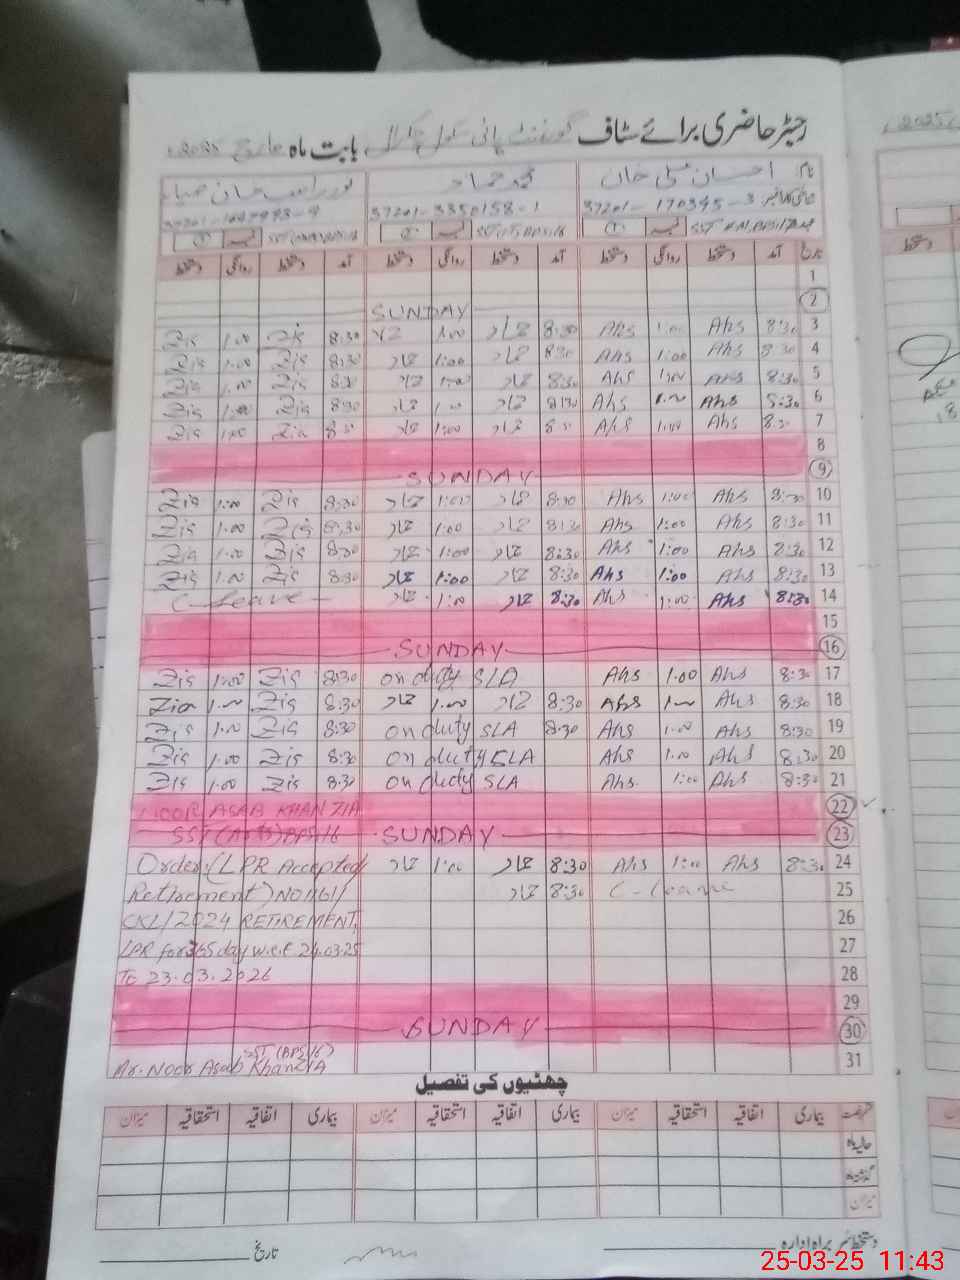 رجسٹر حاضری برائے سٹاف گورنمنٹ ہائی سکول بابت ماہ مارچ 2025
نام احسان علی خان محمد حماد نور اصب خان ضیاء
37201-170345-3 37201-3350158-1
تاریخ آمد دستخط روانگی دستخط آمد دستخط روانگی دستخط آمد دستخط روانگی دستخط
1
2 SUNDAY
3 8:30 Ahs 1:00 Ahs 8:30 حماد 1:00 8:30 Zia 1.00 Zia
4 8:30 Ahs 1:00 Ahs 8:30 حماد 1:00 حماد 8:30 Zia 1.00 Zia
5 8:30 Ahs 1:00 Ahs 8:30 حماد 1:00 حماد 8:30 Zia 1.00 Zia
6 8:30 Ahs 1:00 Ahs 8:30 حماد 1:00 حماد 8:30 Zia 1:00 Zia
7 8:30 Ahs 1:00 Ahs 8:30 حماد 1:00 حماد 8:30 Zia 1:00 Zia
8
9 SUNDAY
10 8:30 Ahs 1:00 Ahs 8:30 حماد 1:00 حماد 8:30 Zia 1:00 Zia
11 8:30 Ahs 1:00 Ahs 8:30 حماد 1:00 حماد 8:30 Zia 1.00 Zia
12 8:30 Ahs 1:00 Ahs 8:30 حماد 1:00 حماد 8:30 Zia 1.00 Zia
13 8:30 Ahs 1:00 Ahs 8:30 حماد 1:00 حماد 8:30 Zia 1.00 Zia
14 8:30 Ahs 1:00 Ahs 8:30 حماد 1:00 حماد C-Leave
15
16 SUNDAY
17 8:30 Ahs 1.00 Ahs on duty SLA 8:30 Zia 1:00 Zia
18 8:30 Ahs 1:00 Ahs 8:30 حماد 1.00 حماد 8:30 Zia 1.00 Zia
19 8:30 Ahs 1:00 Ahs 8:30 on duty SLA 8:30 Zia 1.00 Zia
20 8:30 Ahs 1.00 Ahs on duty SLA 8:30 Zia 1.00 Zia
21 8:30 Ahs 1:00 Ahs on duty SLA 8:30 Zia 1.00 Zia
22 NOOR ASAB KHAN ZIA
23 SUNDAY SST (Arts) BPS-16
24 8:30 Ahs 1:00 Ahs 8:30 حماد 1:00 حماد Order:(LPR Accepted
25 C-Leave 8:30 حماد Retirement) NO
26 CKL/2024 RETIREMENT,
27 LPR for 365 day w.e.f 24.03.25
28 To 23.03.2026
29
30 SUNDAY
31 Mr. Noor Asab Khan ZIA SST (BPS-16)
چھٹیوں کی تفصیل
رخصت بیماری اتفاقیہ استحقاقیہ میزان بیماری اتفاقیہ استحقاقیہ میزان بیماری اتفاقیہ استحقاقیہ میزان
حالیہ ماہ
گذشتہ ماہ
میزان
دستخط سربراہ ادارہ تاریخ
25-03-25 11:43